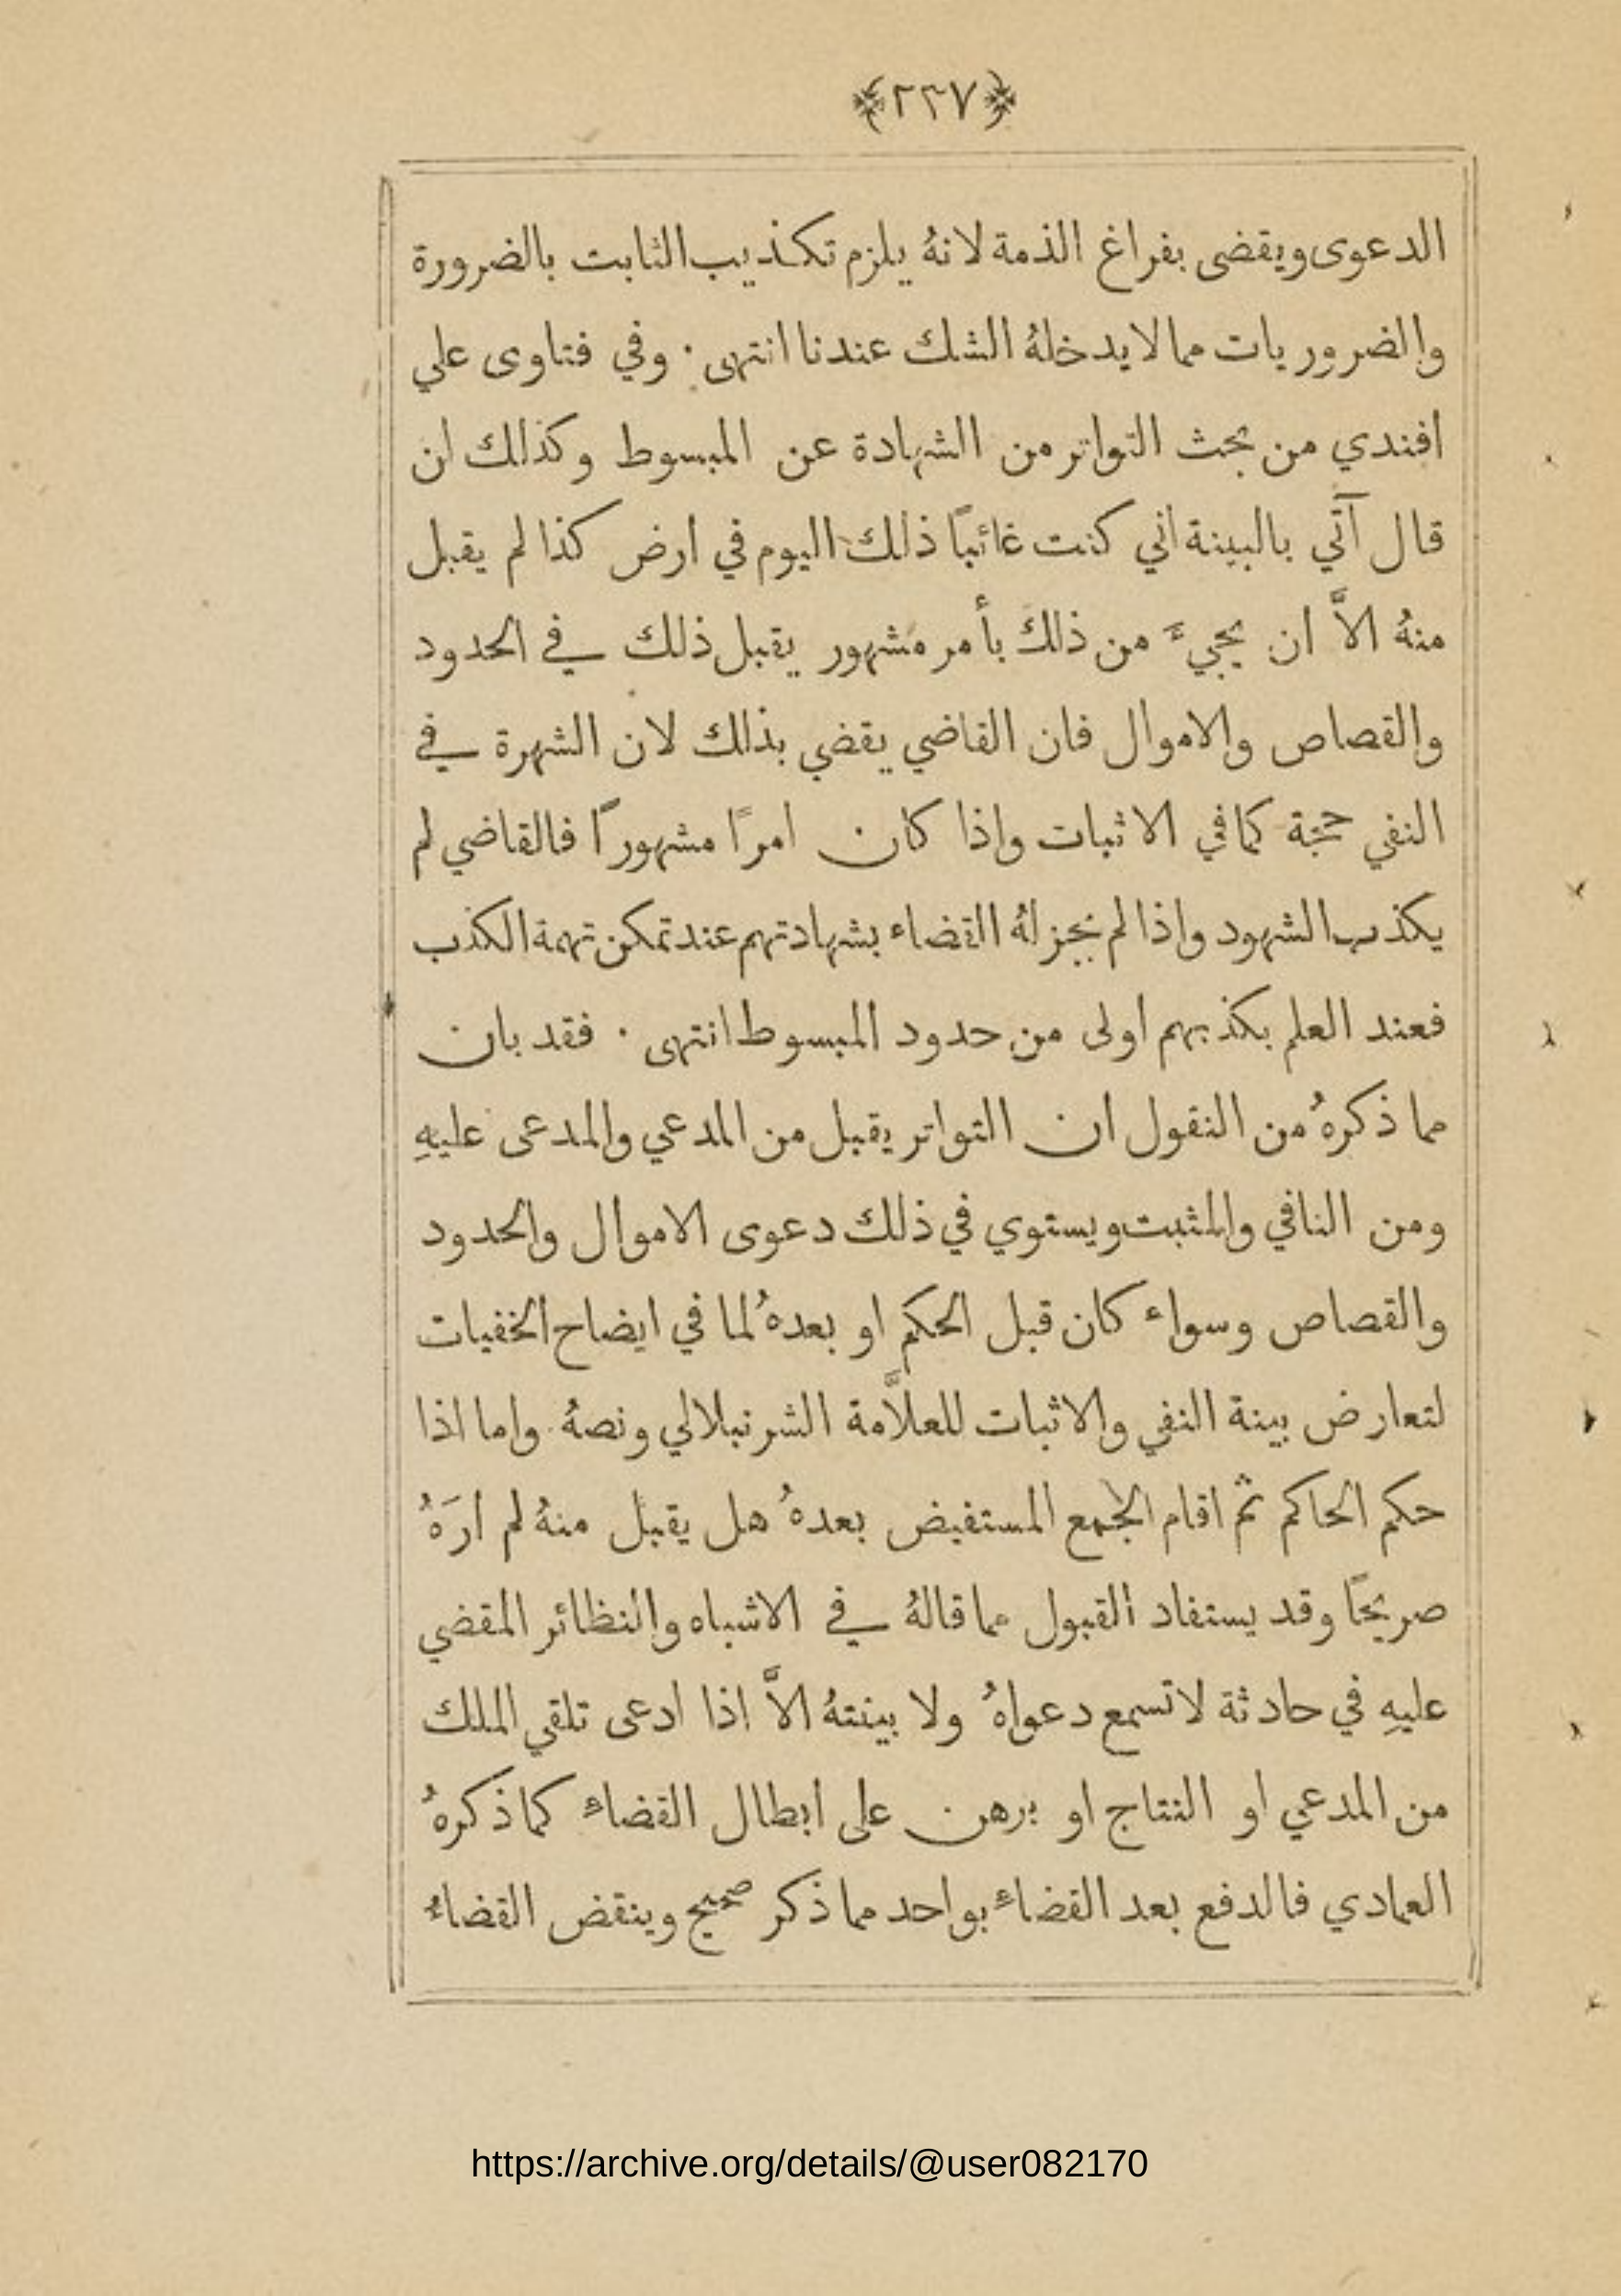 ﴿٢٣٧﴾
الدعوى ويقضى بفراغ الذمة لانهُ يلزم تكذيب الثابت بالضرورة
والضروريات مما لا يدخلهُ الشك عندنا انتهى · وفي فتاوى علي
افندي من بحث التواتر من الشهادة عن المبسوط وكذلك ان
قال آتي بالبينة اني كنت غائبًا ذلك اليوم في ارض كذا لم يقبل
منهُ الاَّ ان يجيءَ من ذلك بأمر مشهور يقبل ذلك في الحدود
والقصاص والاموال فان القاضي يقضي بذلك لان الشهرة في
النفي حجة كما في الاثبات واذا كان امرًا مشهورًا فالقاضي لم
يكذب الشهود واذا لم يجز لهُ القضاء بشهادتهم عند تمكن تهمة الكذب
فعند العلم بكذبهم اولى من حدود المبسوط انتهى · فقد بان
مما ذكرهُ من النقول ان التواتر يقبل من المدعي والمدعى عليهِ
ومن النافي والمثبت ويستوي في ذلك دعوى الاموال والحدود
والقصاص وسواء كان قبل الحكم او بعدهُ لما في ايضاح الخفيات
لتعارض بينة النفي والاثبات للعلاَّمة الشرنبلالي ونصهُ واما اذا
حكم الحاكم ثم اقام الجمع المستفيض بعدهُ هل يقبل منهُ لم ارَهُ
صريحًا وقد يستفاد القبول مما قالهُ في الاشباه والنظائر المقضي
عليهِ في حادثة لا تسمع دعواهُ ولا بينتهُ الاَّ اذا ادعى تلقي الملك
من المدعي او النتاج او برهن على ابطال القضاءِ كما ذكرهُ
العمادي فالدفع بعد القضاءِ بواحد مما ذكر صحيح وينقض القضاءُ
https://archive.org/details/@user082170